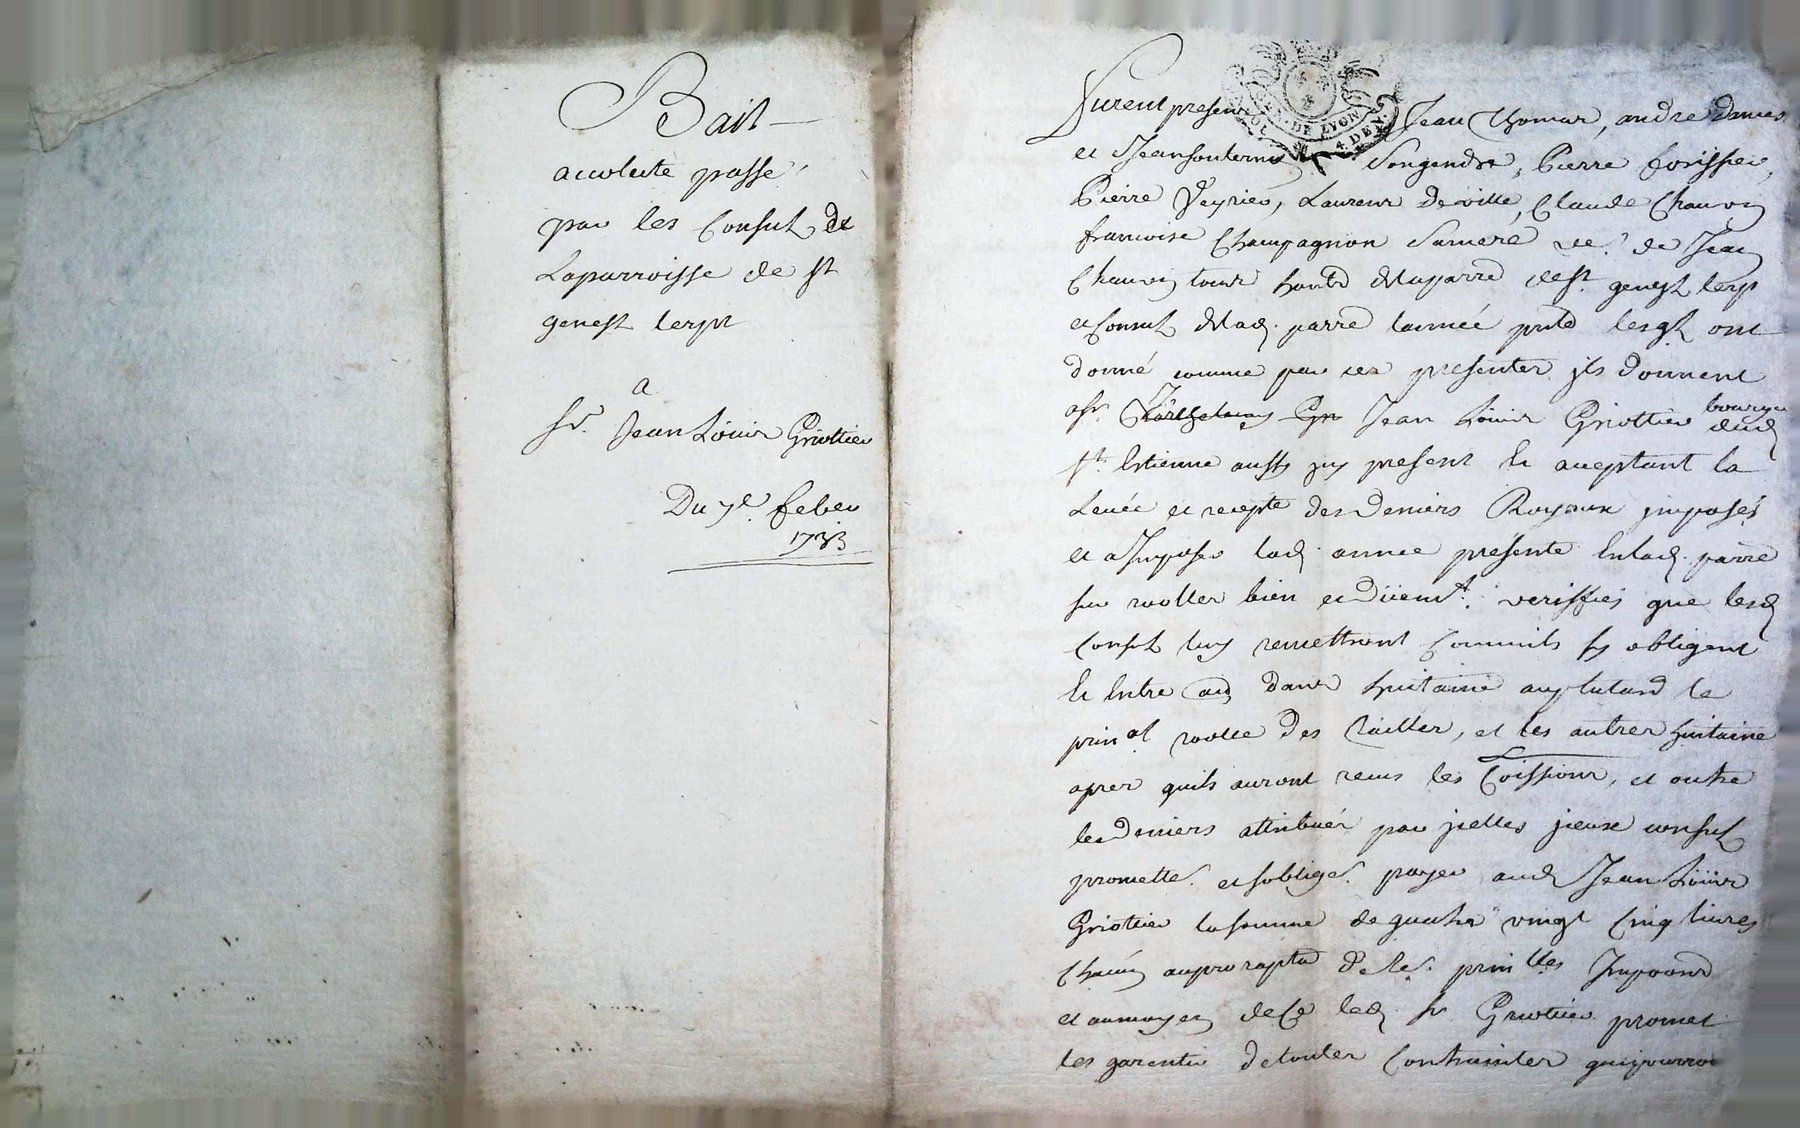 Bail
accolecte passé
par les Consuls de
Laparroisse de st
genest lerpt
a
sr. Jean Loüis Griottier
Du 7e. febvr
1733
Furent presens Jean Thomas, andre
GEN. DE LYON
4. DEN.
et Jean Songendre, Pierre forissier,
Pierre Peyrier, Laurent deville, Claude Chauvin
francoise Champagnon Samere ve. de Jean
Chauvin tous de st. genest lerpt
et Consuls dlad. parre lannée pnte lesqls ont
donné comme par ces presentes jls donnent
a sr. Jean Loüis Griottier bourgs dud
st. Estienne aussy jcy present et aceptant la
Levée et recepte des Deniers Royaux jmposés
et a Jmposer lad. annee presente Enlad. parre
sur rolles bien et düemt. veriffiés que lesd
Consuls luy remettront Comm'ils sy obligent
dans huitaine auplutard le
prinal rolle des tailles, et les autres huitaine
apres quils auront recus les Coissions, et outre
les Deniers attribués par jcelles jceux consuls
promette. et soblige. payer aud Jean Loüis
Griottier la somme de quatre vingt Cinq livres
Chacun auprorapta de le. prinlles
et aumoyen dece led. sr Griottier promet
les garentir detoutes Contraintes quipourroi